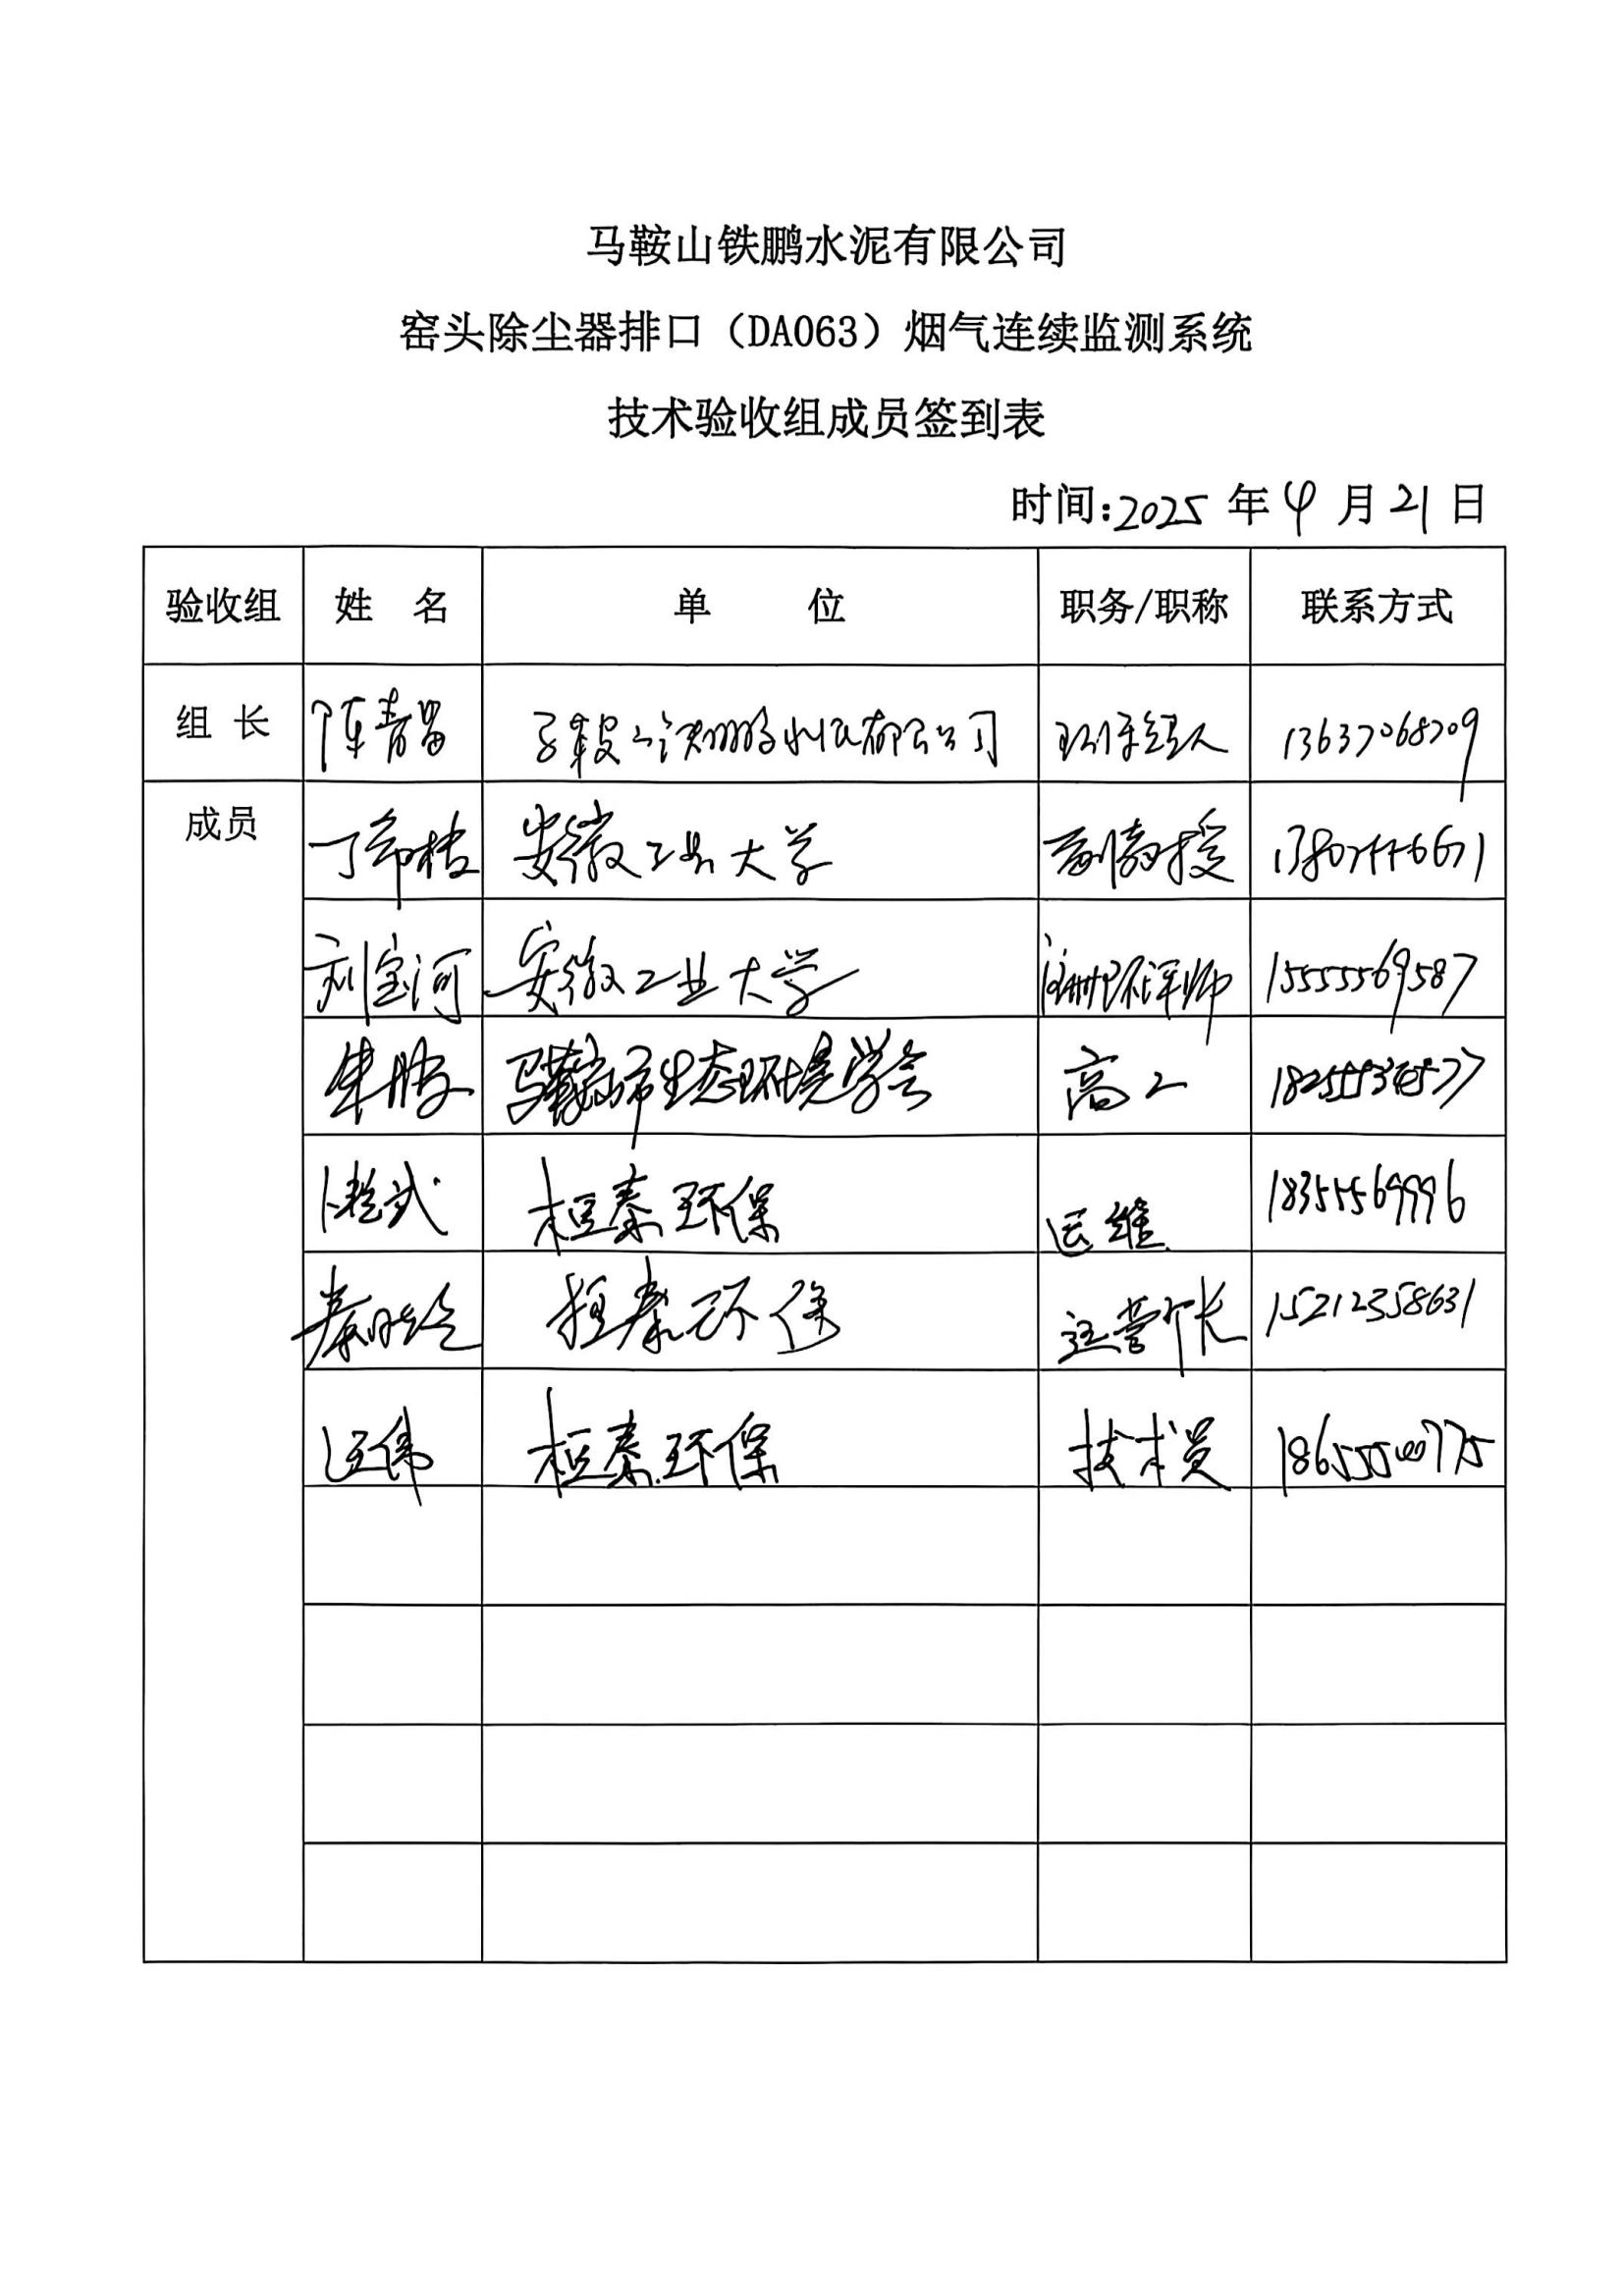 马鞍山铁鹏水泥有限公司
窑头除尘器排口（DA063）烟气连续监测系统
技术验收组成员签到表
时间:2025 年 4 月 21 日
验收组 姓 名 单 位 职务/职称 联系方式
组 长 陈青 马鞍山铁鹏水泥有限公司 13637068709
成员 丁 安徽工业大学 副教授
刘宝河 安徽工业大学 注册环评师 15555569587
朱 马鞍山市生态环境学会 高工
桓泰环保 运维 18355569996
秦 桓泰环保 运营 长 15212358631
汪伟 桓泰环保 技术员 18655500775